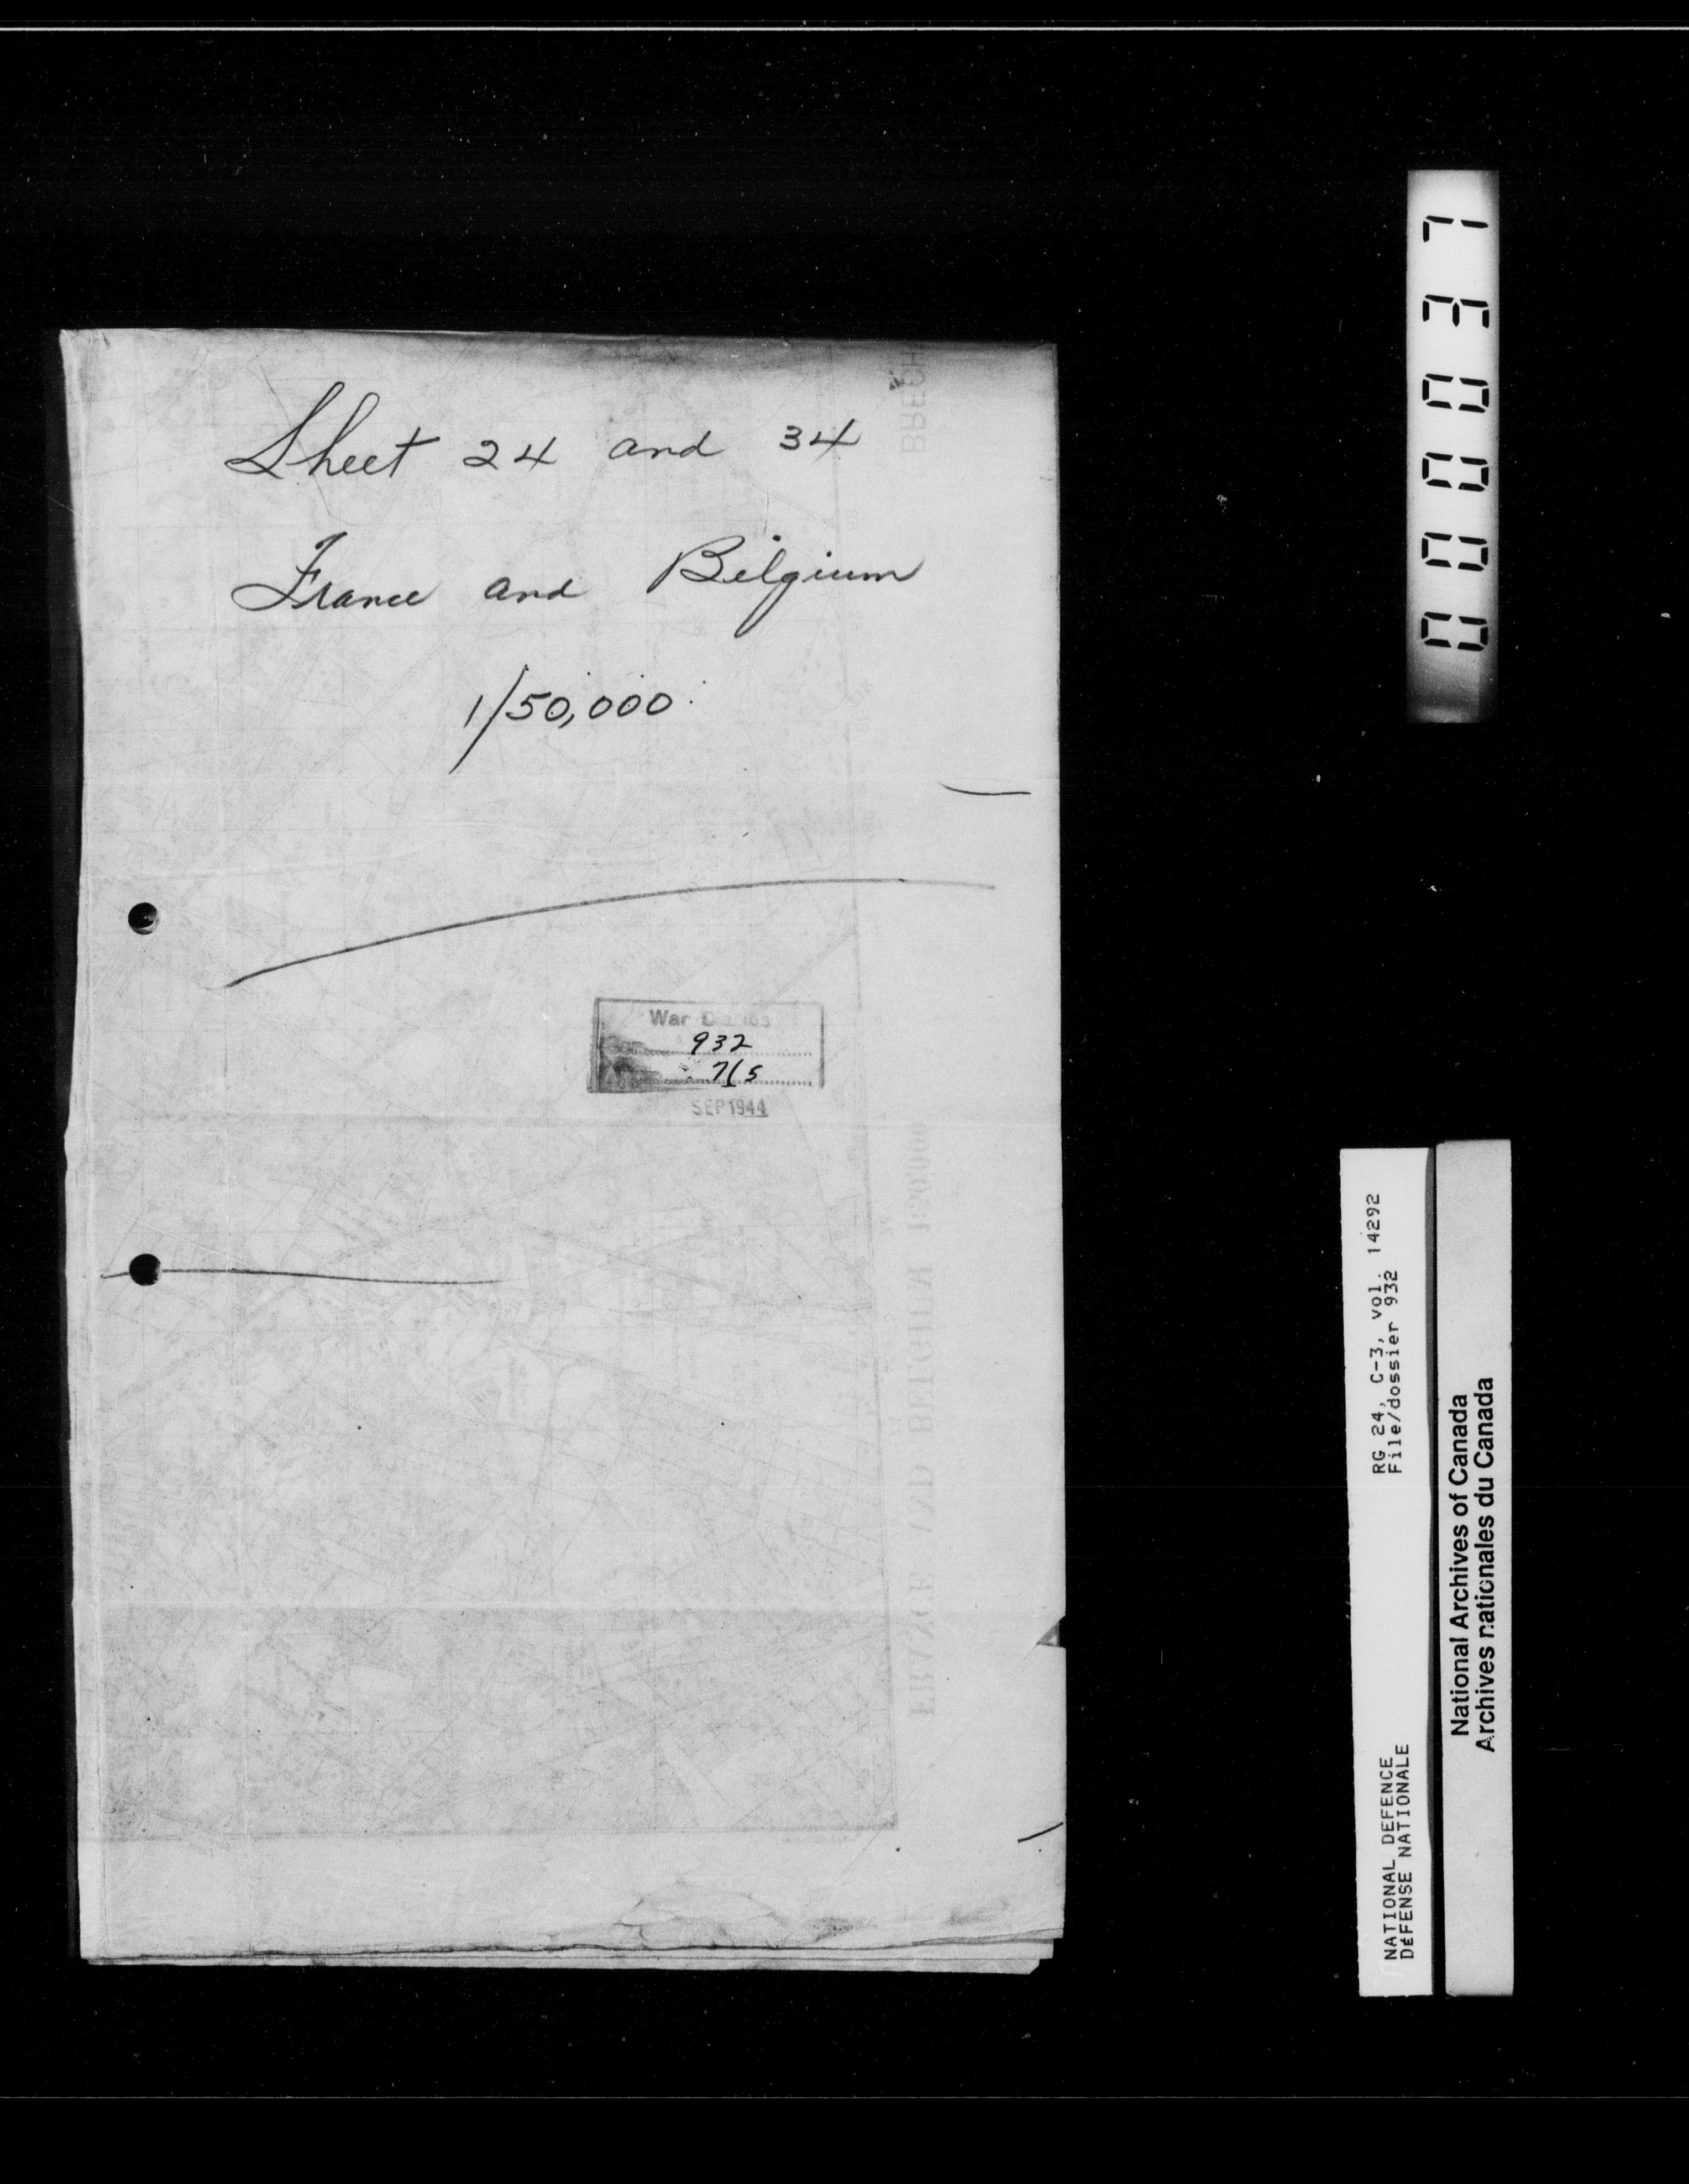 Sheet 24 and 34
France and Belgium
1/50,000
War Diaries
932
7/5
SEP 1944
FRANCE AND BELGIUM 1:50,000
000037
RG 24, C-3, vol. 14292
File/dossier 932
NATIONAL DEFENCE
DÉFENSE NATIONALE
National Archives of Canada
Archives nationales du Canada